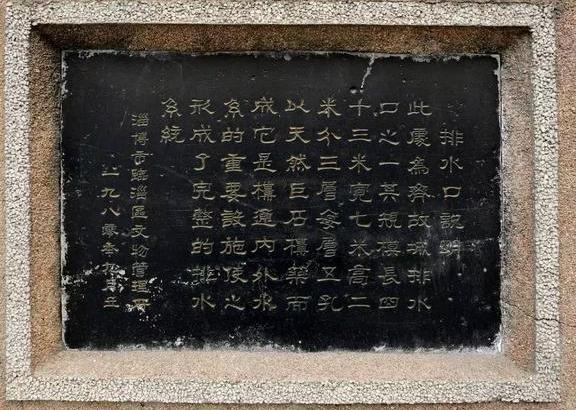 排水口説明
此處為齊故城排水
口之一其規模長四
十三米寬七米高二
米分三層每層五孔
以天然巨石構築而
成它是構通内外水
系的重要設施使之
形成了完整的排水
系統
淄博市臨淄區文物管理
一九八零年